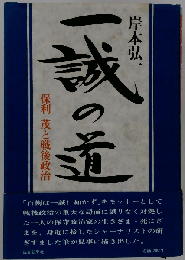 岸本弘一
一誠の道
保利茂と戦後政治
「百術は一誠に如かず」をモットーとして
戦後政治の重大な局面に誤りなく対処し
た一人の保守政治家の生きざま・死にざ
まを、身近に接したジャーナリストの研
ぎすました筆が見事に描き出した。
毎日新聞社